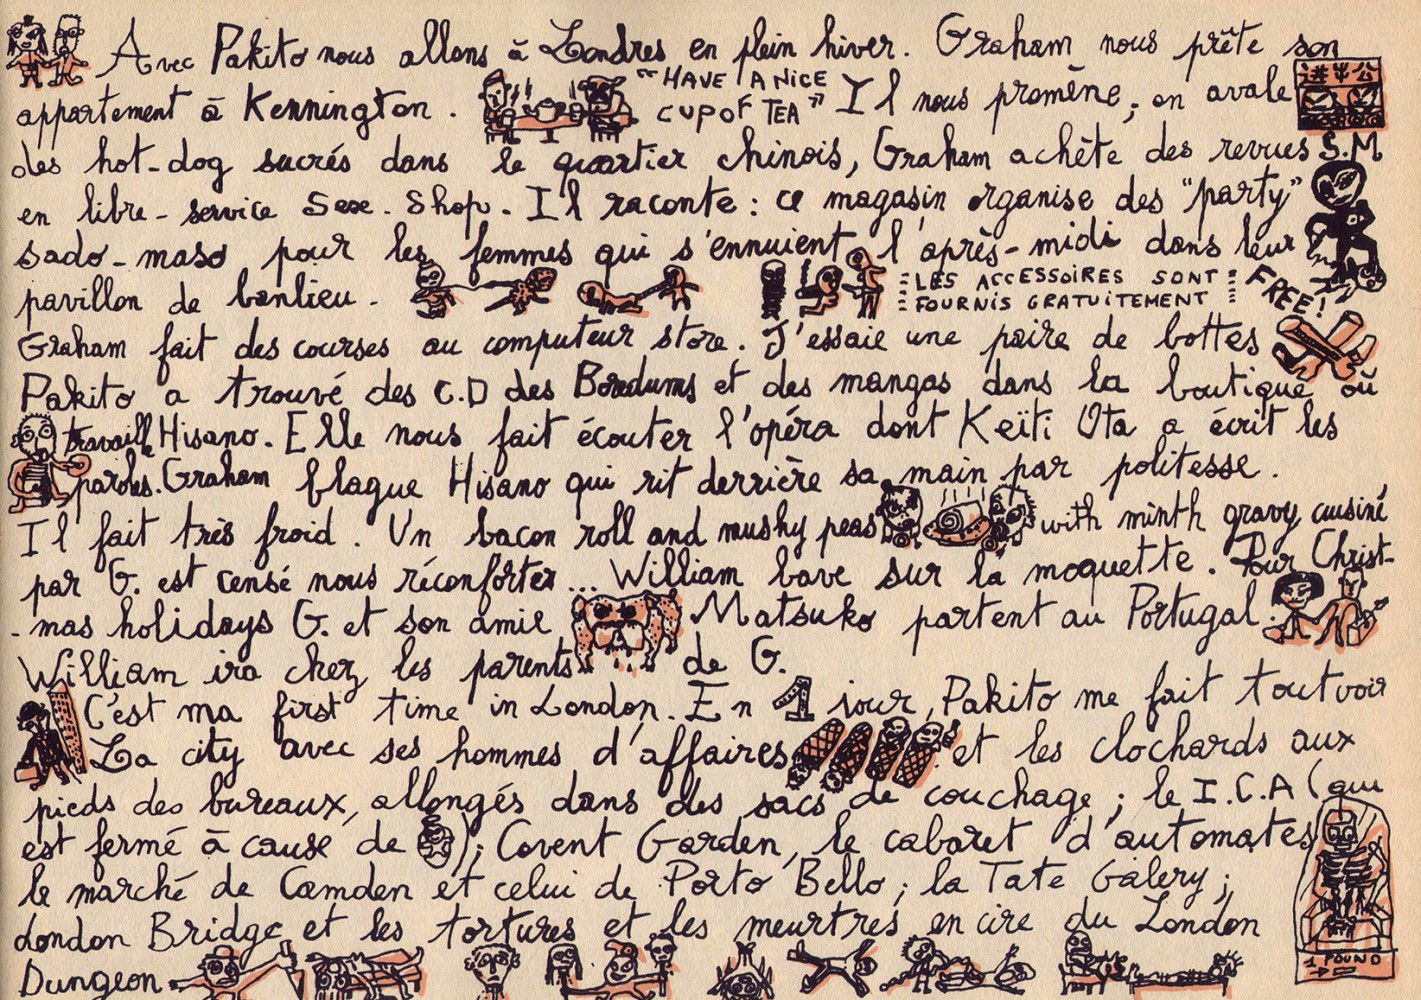 Avec Pakito nous allons à Londres en plein hiver. Graham nous prête son
appartement à Kennington. "HAVE A NICE CUP OF TEA" Il nous promène, on avale
des hot-dog sucrés dans le quartier chinois, Graham achète des revues S.M
en libre-service Sexe-Shop. Il raconte : ce magasin organise des "party"
sado-maso pour les femmes qui s'ennuient l'après-midi dans leur
pavillon de banlieu. LES ACCESSOIRES SONT FOURNIS GRATUITEMENT FREE!
Graham fait des courses au computeur store. J'essaie une paire de bottes
Pakito a trouvé des C.D des Boredums et des mangas dans la boutique où
travaille Hisano. Elle nous fait écouter l'opéra dont Keïti Ota a écrit les
paroles. Graham blague Hisano qui rit derrière sa main par politesse.
Il fait très froid. Un bacon roll and mushy peas with minth gravy cuisiné
par G. est censé nous réconforter... William bave sur la moquette. Pour Christ-
-mas holidays G. et son amie Matsuko partent au Portugal.
William ira chez les parents de G.
C'est ma first time in London. En 1 jour, Pakito me fait tout voir
La city avec ses hommes d'affaires et les clochards aux
pieds des bureaux, allongés dans des sacs de couchage ; le I.C.A (qui
est fermé à cause de ) ; Covent Garden, le cabaret d'automates
le marché de Camden et celui de Porto Bello ; la Tate Galery ;
London Bridge et les tortures et les meurtres en cire du London
Dungeon. 1 POUND